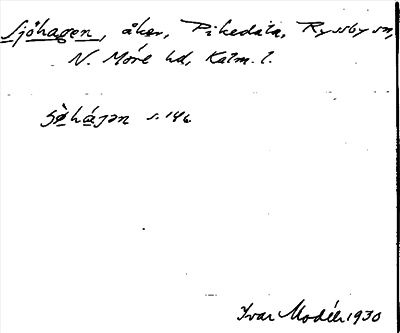 Sjöhagen, åker, Pikedala, Ryssby sn,
N. Möre hd, Kalm. l.
sø̀há̱gən s. 146
Ivar Modéer 1930